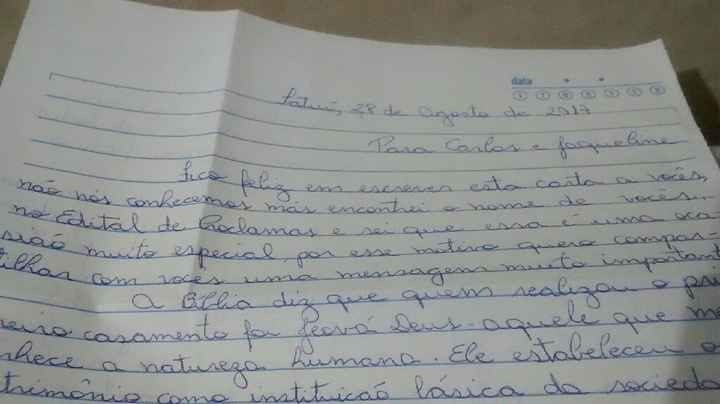 data
Tatuí, 28 de Agosto de 2017
Para Carlos e Jaqueline
Fico feliz em escrever esta carta a vocês,
não nós conhecemos mais encontrei o nome de vocês
no Edital de Proclamas e sei que essa é uma oca-
sião muito especial, por esse motivo quero compar-
tilhar com vocês uma mensagem muito important
A Bíblia diz que quem realizou o pri
meiro casamento foi Jeová Deus - aquele que me
nhece a natureza humana. Ele estabeleceu o
trimônio como instituicaó básica da socieda